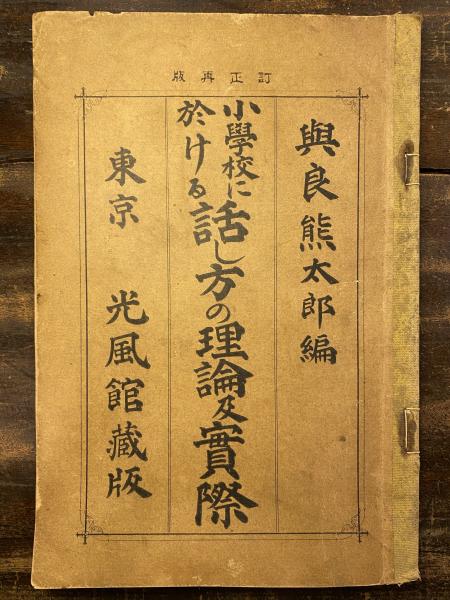 訂正再版
與良熊太郎編
小學校に
於ける
話し方の理論及實際
東京　光風館藏版